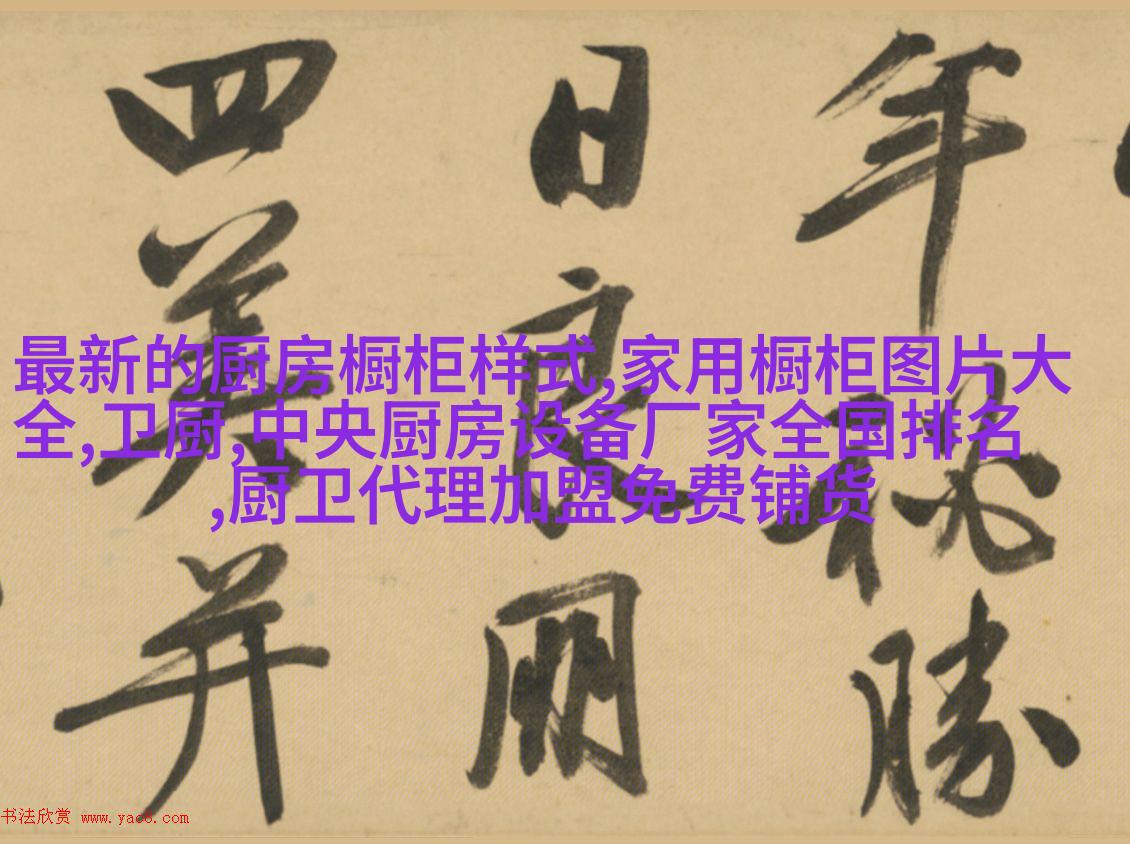 年秘勝
日良朋
四美并
最新的厨房橱柜样式,家用橱柜图片大
全,卫厨,中央厨房设备厂家全国排名
,厨卫代理加盟免费铺货
书法欣赏 www.yac8.com